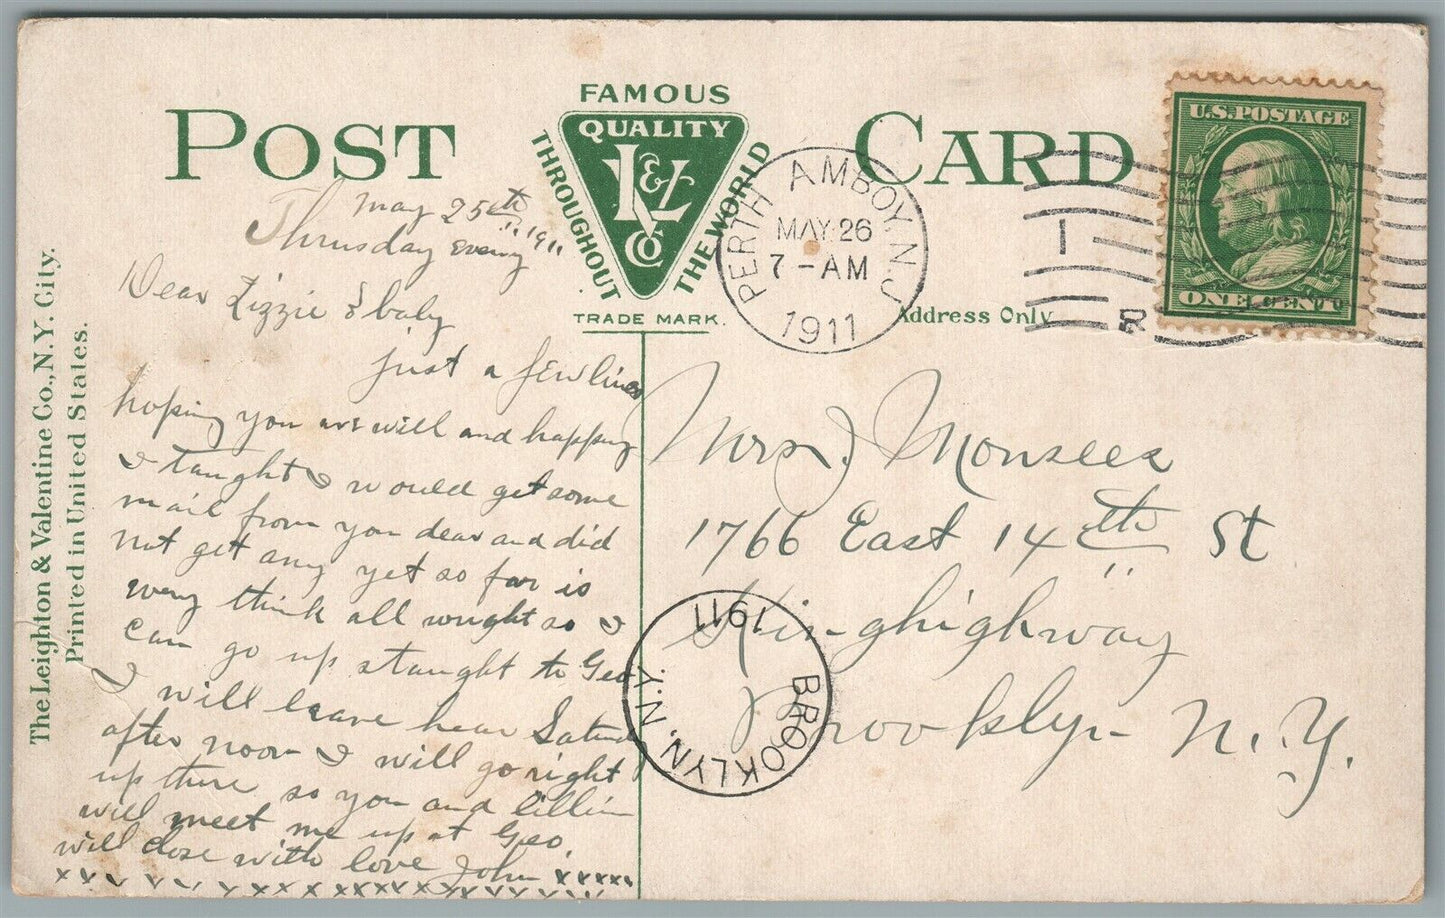 POST CARD
FAMOUS
QUALITY
THROUGHOUT
THE WORLD
L & V
CO
TRADE MARK.
Address Only
U.S. POSTAGE
ONE CENT
PERTH AMBOY, N.J.
MAY 26
7-AM
1911
1
The Leighton & Valentine Co., N.Y. City.
Printed in United States.
May 25th
Thrusday eveny 1911
Dear Lizzie & baby
just a few lines
hoping you are will and happy
I taught I would get some
mail from you dear and did
not get any yet so far is
weny think all wright so I
can go up staught to Geo
I will leave hear Saturd
after noon I will go right
up there so you and Lillian
will meet me up at Geo.
will close with love John xxxxx
Mrs J Monsees
1766 East 14th St
Kinghighway
Brooklyn N.Y.
BROOKLYN, N.Y.
1911